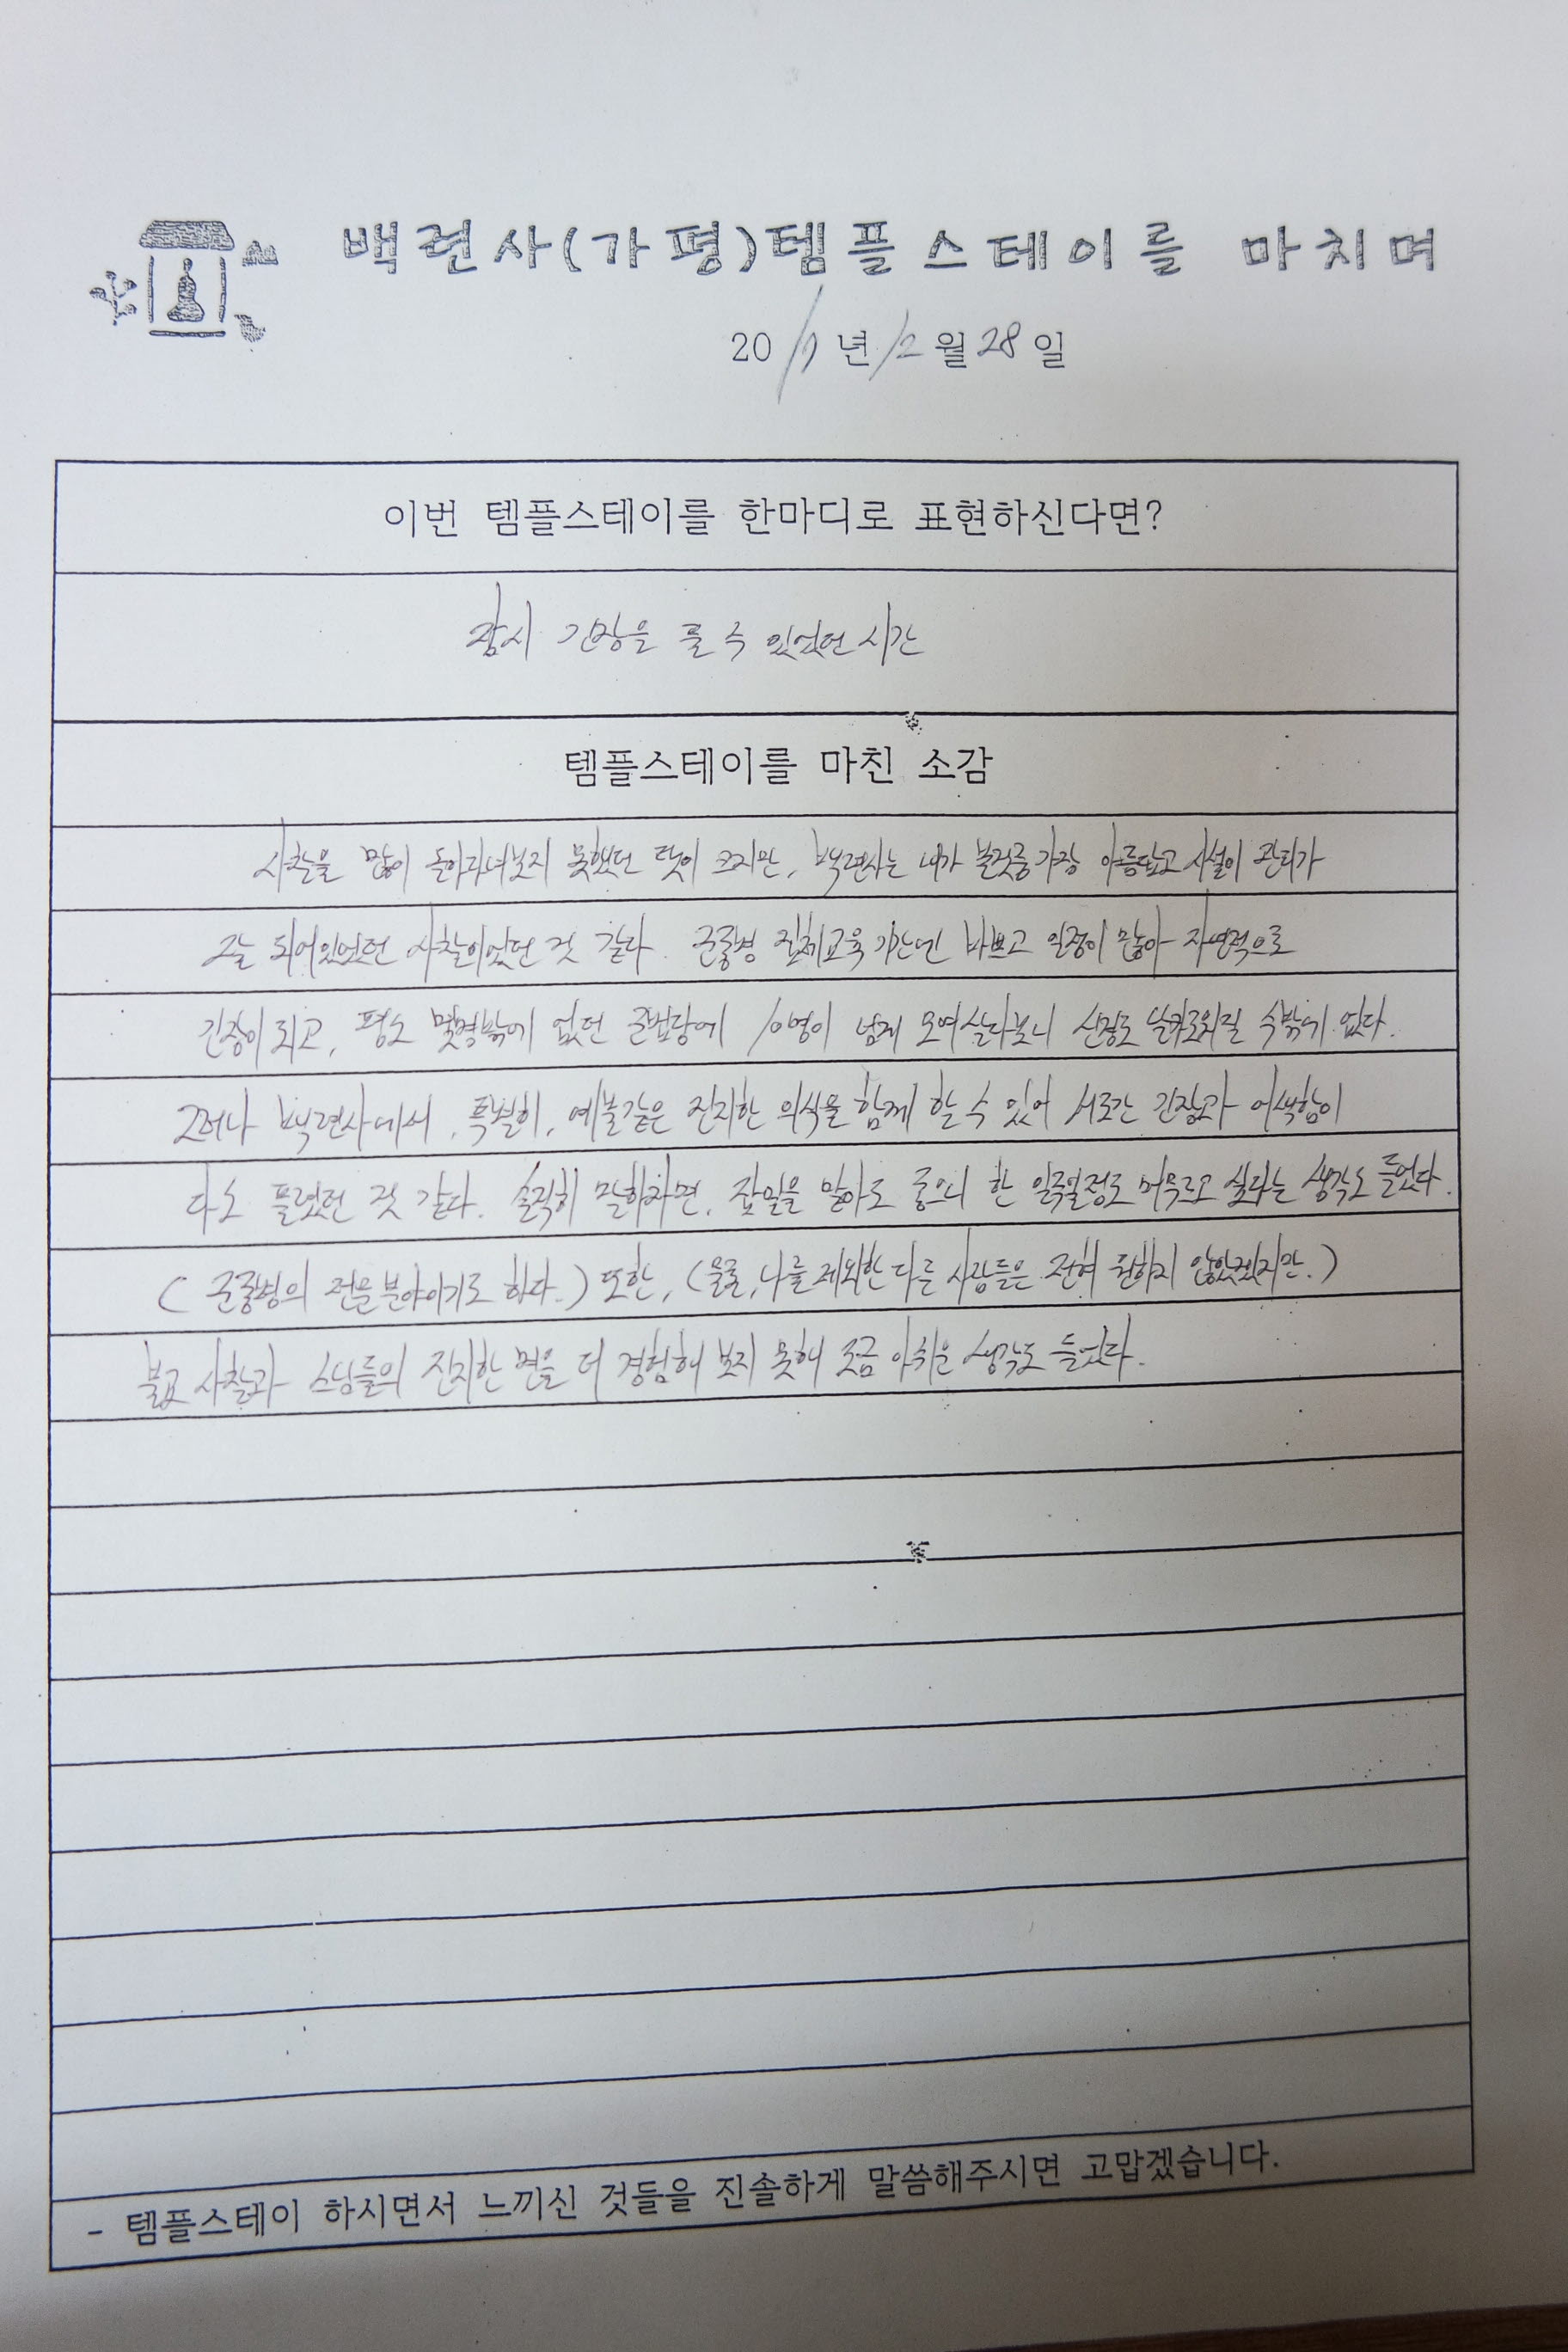 백련사(가평)템플스테이를 마치며
2017년 12월 28일
이번 템플스테이를 한마디로 표현하신다면?
잠시 긴장을 풀 수 있었던 시간
템플스테이를 마친 소감
사찰을 많이 돌아다녀보지 못했던 탓이 크지만, 백련사는 내가 본것중 가장 아름답고 시설이 관리가
잘 되어있었던 사찰이었던 것 같다. 군종병 집체교육 기간엔 바쁘고 일정이 많아 자연적으로
긴장이 되고, 평소 몇명밖에 없던 군법당에 10명이 넘게 모여살다보니 신경도 날카로워질 수밖에 없다.
그러나 백련사에서, 특별히, 예불같은 진지한 의식을 함께 할 수 있어 서로간 긴장과 어색함이
다소 풀렸던 것 같다. 솔직히 말하자면, 잡일을 맡아도 좋으니 한 일주일정도 머무르고 싶다는 생각도 들었다.
( 군종병의 전문분야이기도 하다.) 또한, (물론, 나를 제외한 다른 사람들은 전혀 원하지 않았겠지만.)
불교 사찰과 스님들의 진지한 면을 더 경험해 보지 못해 조금 아쉬운 생각도 들었다.
- 템플스테이 하시면서 느끼신 것들을 진솔하게 말씀해주시면 고맙겠습니다.